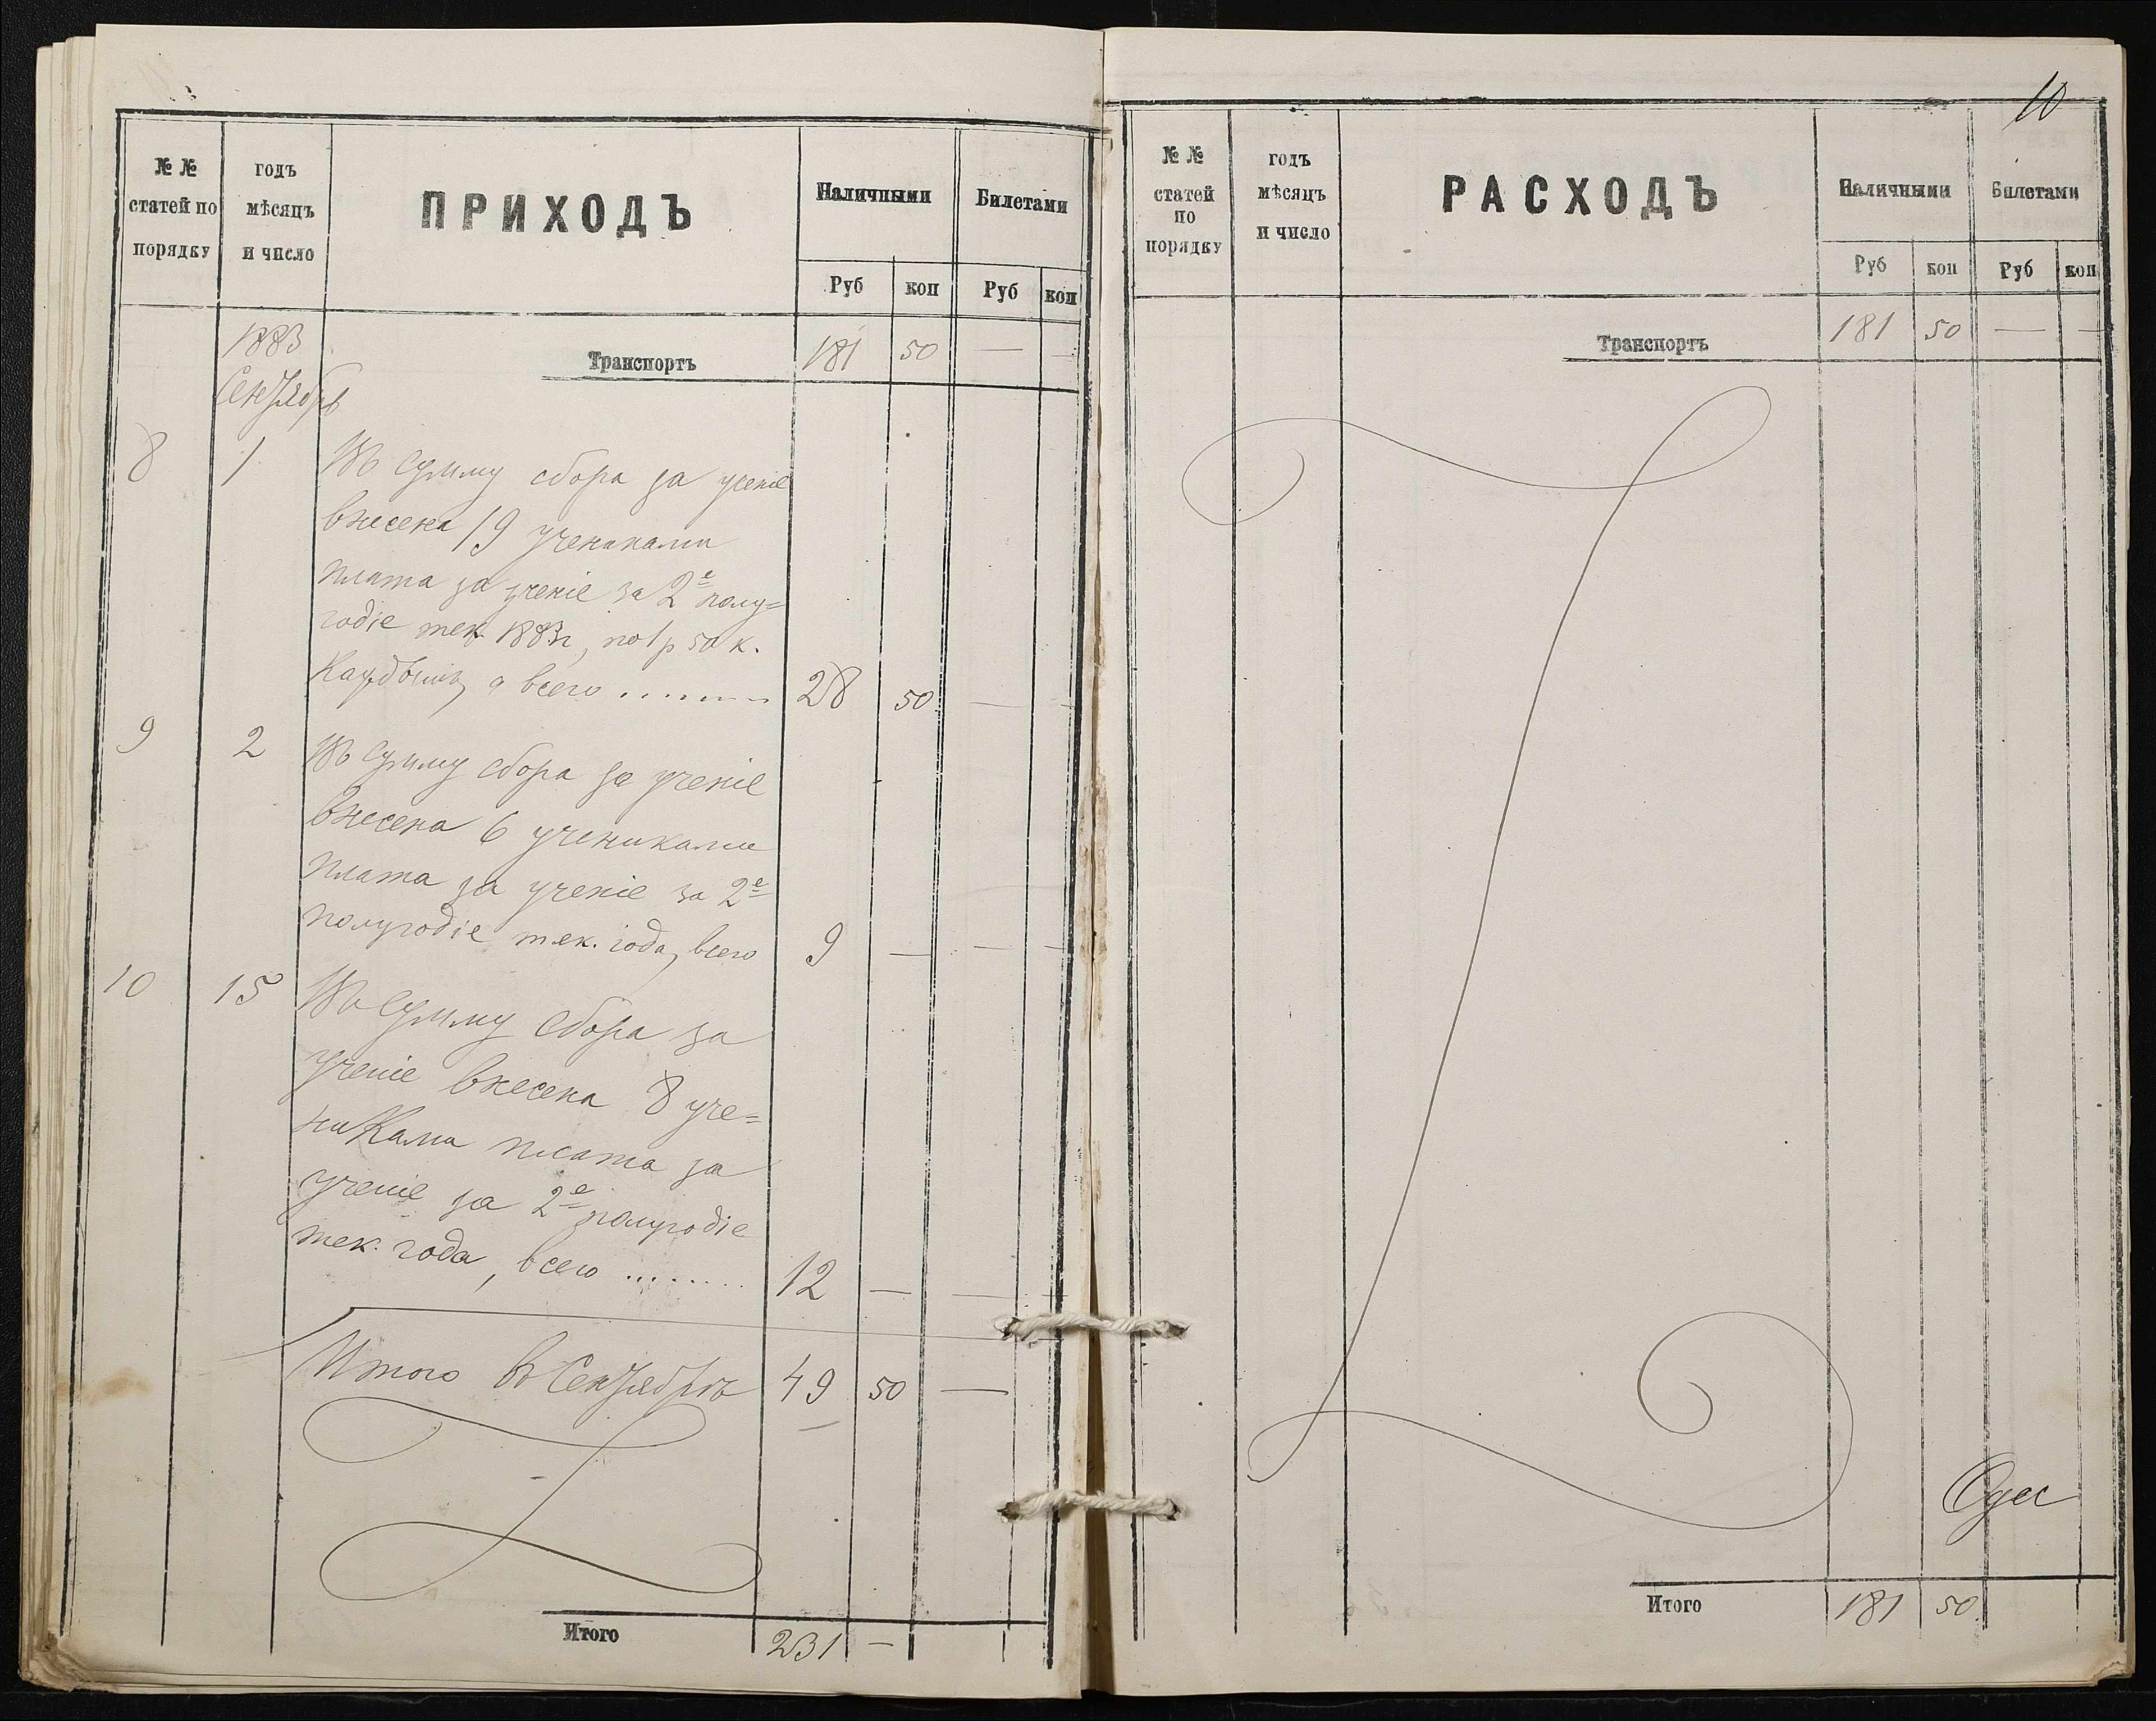 № №
статей по
порядку
годъ
мѣсяцъ
и число
ПРИХОДЪ
Наличными
Билетами
Руб
коп
Руб
коп
1883
Сентябрь
Транспортъ
181
50
—
—
8
1
Въ сумму сбора за ученіе
внесена 19 учениками
плата за ученіе за 2е полу=
годіе тек. 1883 г, по 1 р 50 к.
каждымъ, а всего ........
28
50
—
—
9
2
Въ сумму сбора за ученіе
внесена 6 учениками
плата за ученіе за 2е
полугодіе тек. года, всего
9
—
—
—
10
15
Въ сумму сбора за
ученіе внесена 8 уче=
никами плата за
ученіе за 2е полугодіе
тек. года, всего ........
12
—
—
—
Итого въ Сентябрѣ
49
50
—
Итого
231
—
10
№ №
статей
по
порядку
годъ
мѣсяцъ
и число
РАСХОДЪ
Наличными
Билетами
Руб
коп
Руб
коп
Транспортъ
181
50
—
—
Итого
181
50